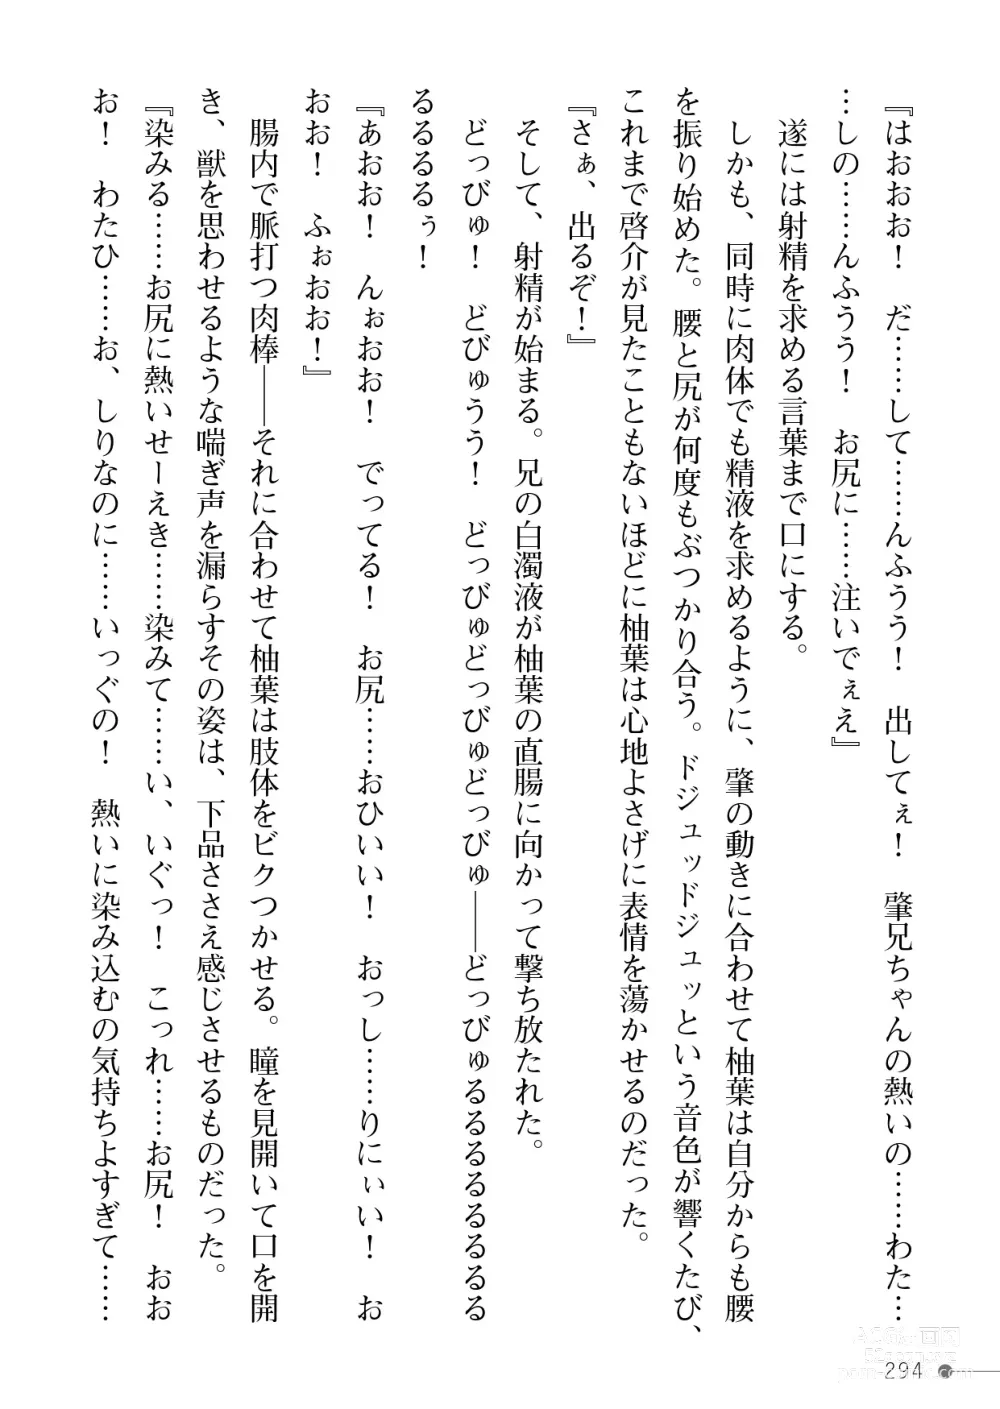 『はおおお！　だ……して……んふうう！　出してぇ！　肇兄ちゃんの熱いの……わた…
…しの……んふうう！　お尻に……注いでぇえ』
遂には射精を求める言葉まで口にする。
しかも、同時に肉体でも精液を求めるように、肇の動きに合わせて柚葉は自分からも腰
を振り始めた。腰と尻が何度もぶつかり合う。ドジュッドジュッという音色が響くたび、
これまで啓介が見たこともないほどに柚葉は心地よさげに表情を蕩かせるのだった。
『さぁ、出るぞ！』
そして、射精が始まる。兄の白濁液が柚葉の直腸に向かって撃ち放たれた。
どっびゅ！　どびゅうう！　どっびゅどっびゅどっびゅ――どっびゅるるるるるるるる
るるるるぅ！
『あおお！　んぉおお！　でってる！　お尻……おひいい！　おっし……りにぃい！　お
おお！　ふぉおお！』
腸内で脈打つ肉棒――それに合わせて柚葉は肢体をビクつかせる。瞳を見開いて口を開
き、獣を思わせるような喘ぎ声を漏らすその姿は、下品ささえ感じさせるものだった。
『染みる……お尻に熱いせーえき……染みて……い、いぐっ！　こっれ……お尻！　おお
お！　わたひ……お、しりなのに……いっぐの！　熱いに染み込むの気持ちよすぎて……
294